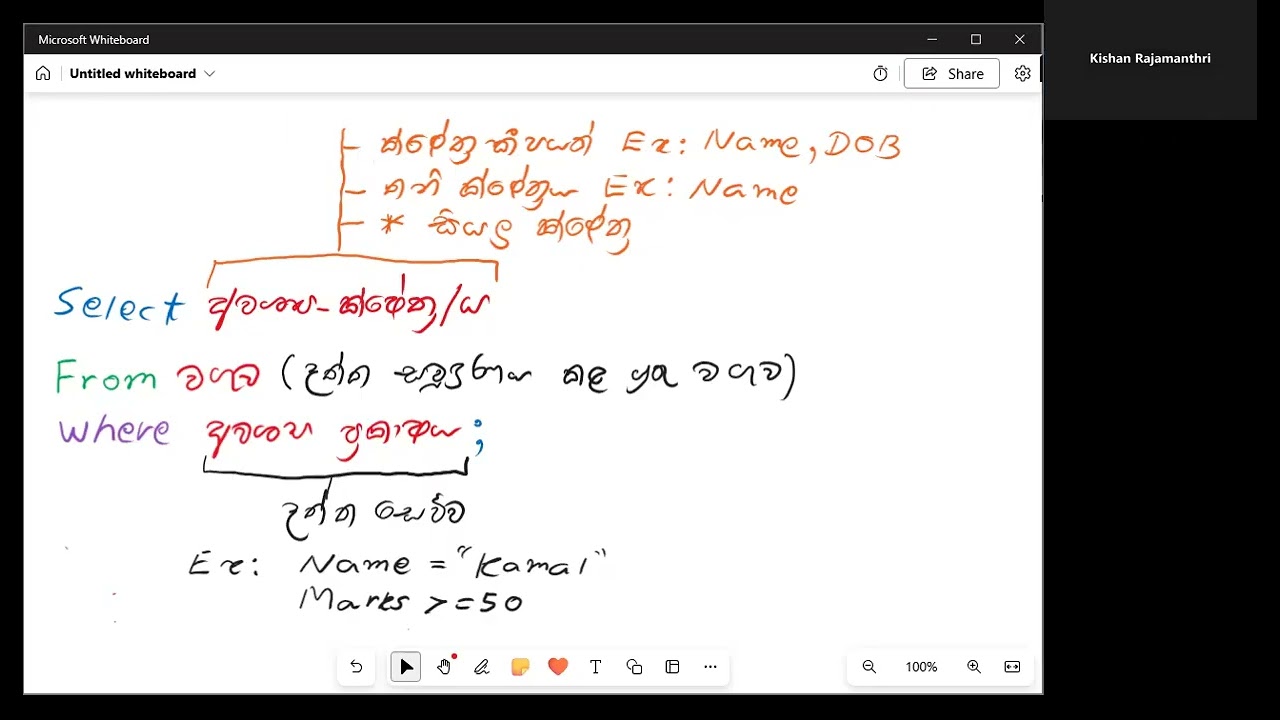 Microsoft Whiteboard
Untitled whiteboard
Share
Kishan Rajamanthri
ක්ෂේත්‍ර කීපයක් Ex: Name, DOB
තනි ක්ෂේත්‍රය Ex: Name
* සියලු ක්ෂේත්‍ර
Select අවශ්‍ය ක්ෂේත්‍ර/ය
From වගුව (දත්ත සම්පූර්ණ කළ යුතු වගුව)
where අවශ්‍ය ප්‍රකාශය ;
දත්ත සෙවීම
Ex: Name = "Kamal"
Marks >=50
100%